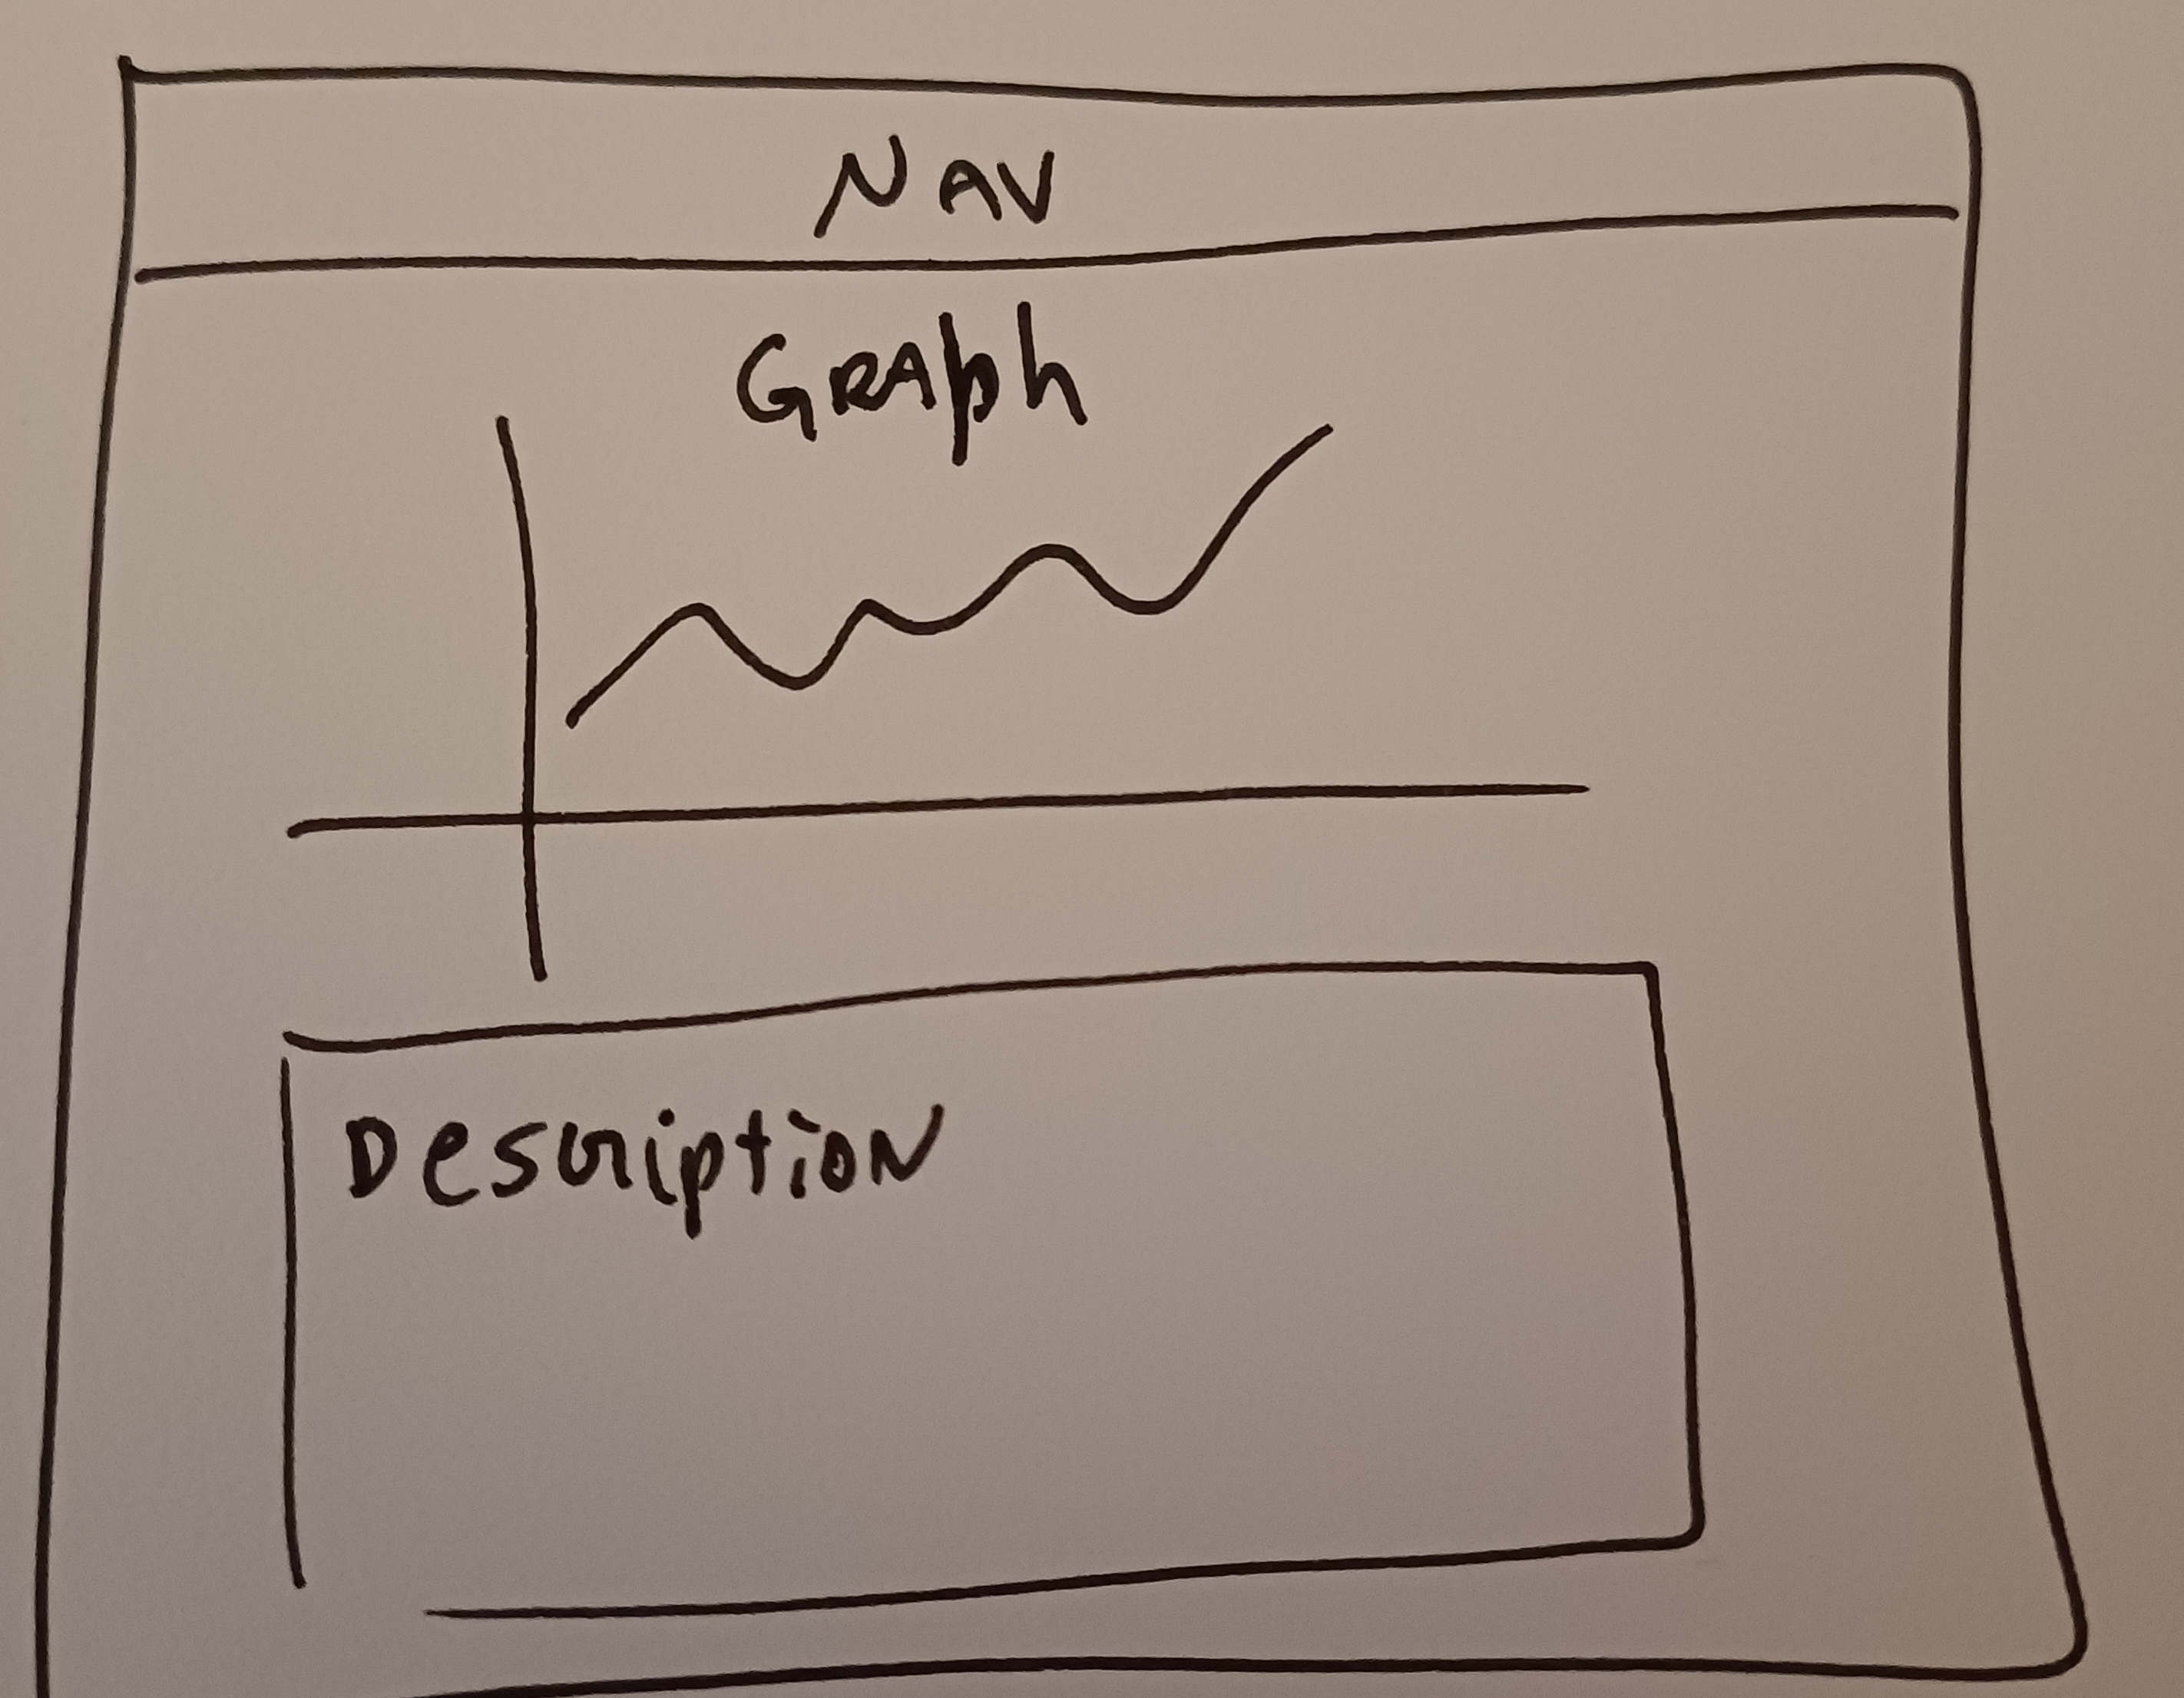 NAV
GRAph
Description